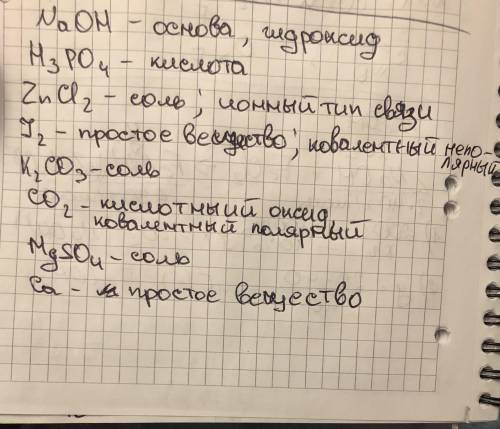 NaOH - основа, гидроксид
H3PO4 - кислота
ZnCl2 - соль; ионный тип связи
J2 - простое вещество; ковалентный непо-
лярный
K2CO3 - соль
CO2 - кислотный оксид,
ковалентный полярный
MgSO4 - соль
Ca - простое вещество